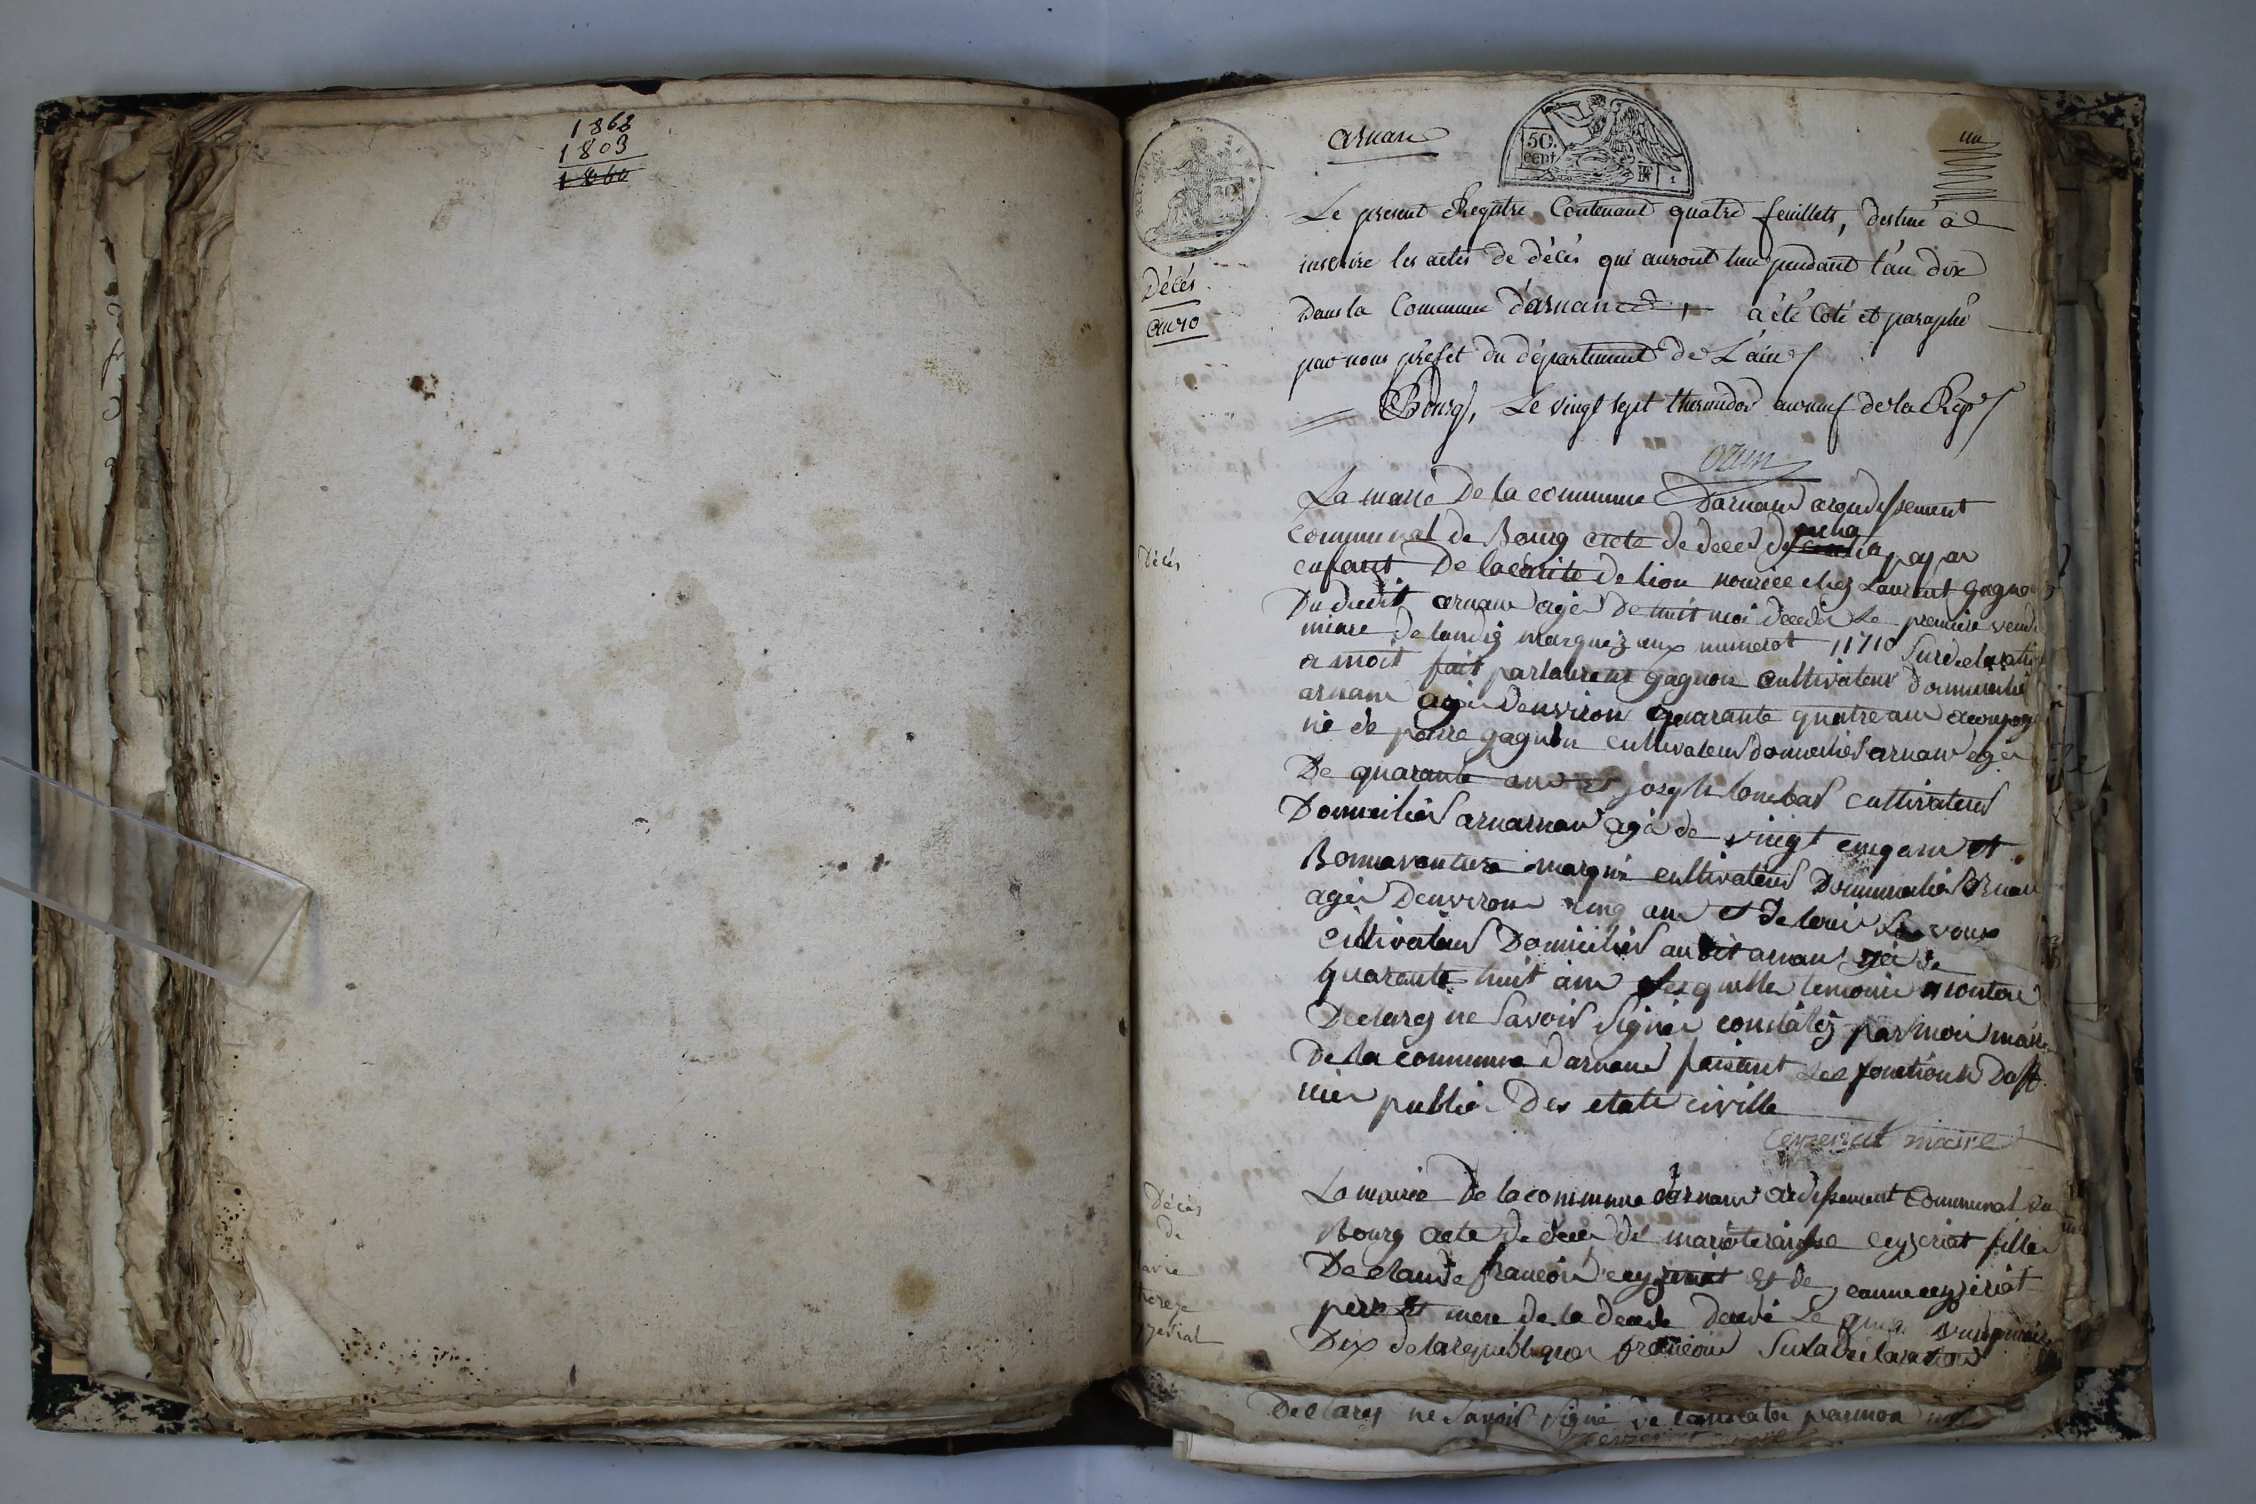 1868
1803
1860
arnan
50.
cent
un
Le present Registre Contenant quatre feuillets, destiné à
inscrire les actes de décès qui auront lieu pendant l'an dix
Dans la Commune d'arnan, a été Coté et paraphé
par nous préfet du département de L'ain
Bourg, Le vingt sept thermidor an neuf de la Rép
Décés
an 10
ozun
Décés
La marie De la commune Darnan arondissement
communal de Bourg acte de deces de
enfant De la carite de lion nouriee chez Laurent gagnon
Du dedit arnan agé De huit moi decedé Le premire vende
miare de landiz marquez aux numerot 11710 Sur declaratio
a moit fait par laurent gagnon cultivateur domicilié
arnan agé denviron quarante quatre an acompag
né de pierre gagnon cultivateur domiciliés arnan agé
De quarante ans et joseph loubas cultivateur
Domiciliés arnarnan agé de vingt cinq ans et
Bonnaventure marqui cultivateur Domicilié arnan
agé Denviron cinq an et de
cultivateur Domiciliés au dit arnan agé de
quarante huit ans Lesquelle temoin montere
Declarez ne Savoir Signer constatéz par moi maire
De la commune darnan faisant Les fonctions Dofi
cier public Des etate civille
ceyzeriat maire
Décès
de
marie
therese
ceyzeriat
La mairie De la commune darnan ardissement communal de
Bourg acte de décé de marie teraisse ceyzeriat fille
De claude francoi ceyzeriat et de jeanne ceyzeriat
pere et mere de la decede decede Le cinq
Dix de la republique francoise Sur la declaration
Declarez ne Savoir signé de constater par moi
ceyzeriat maire